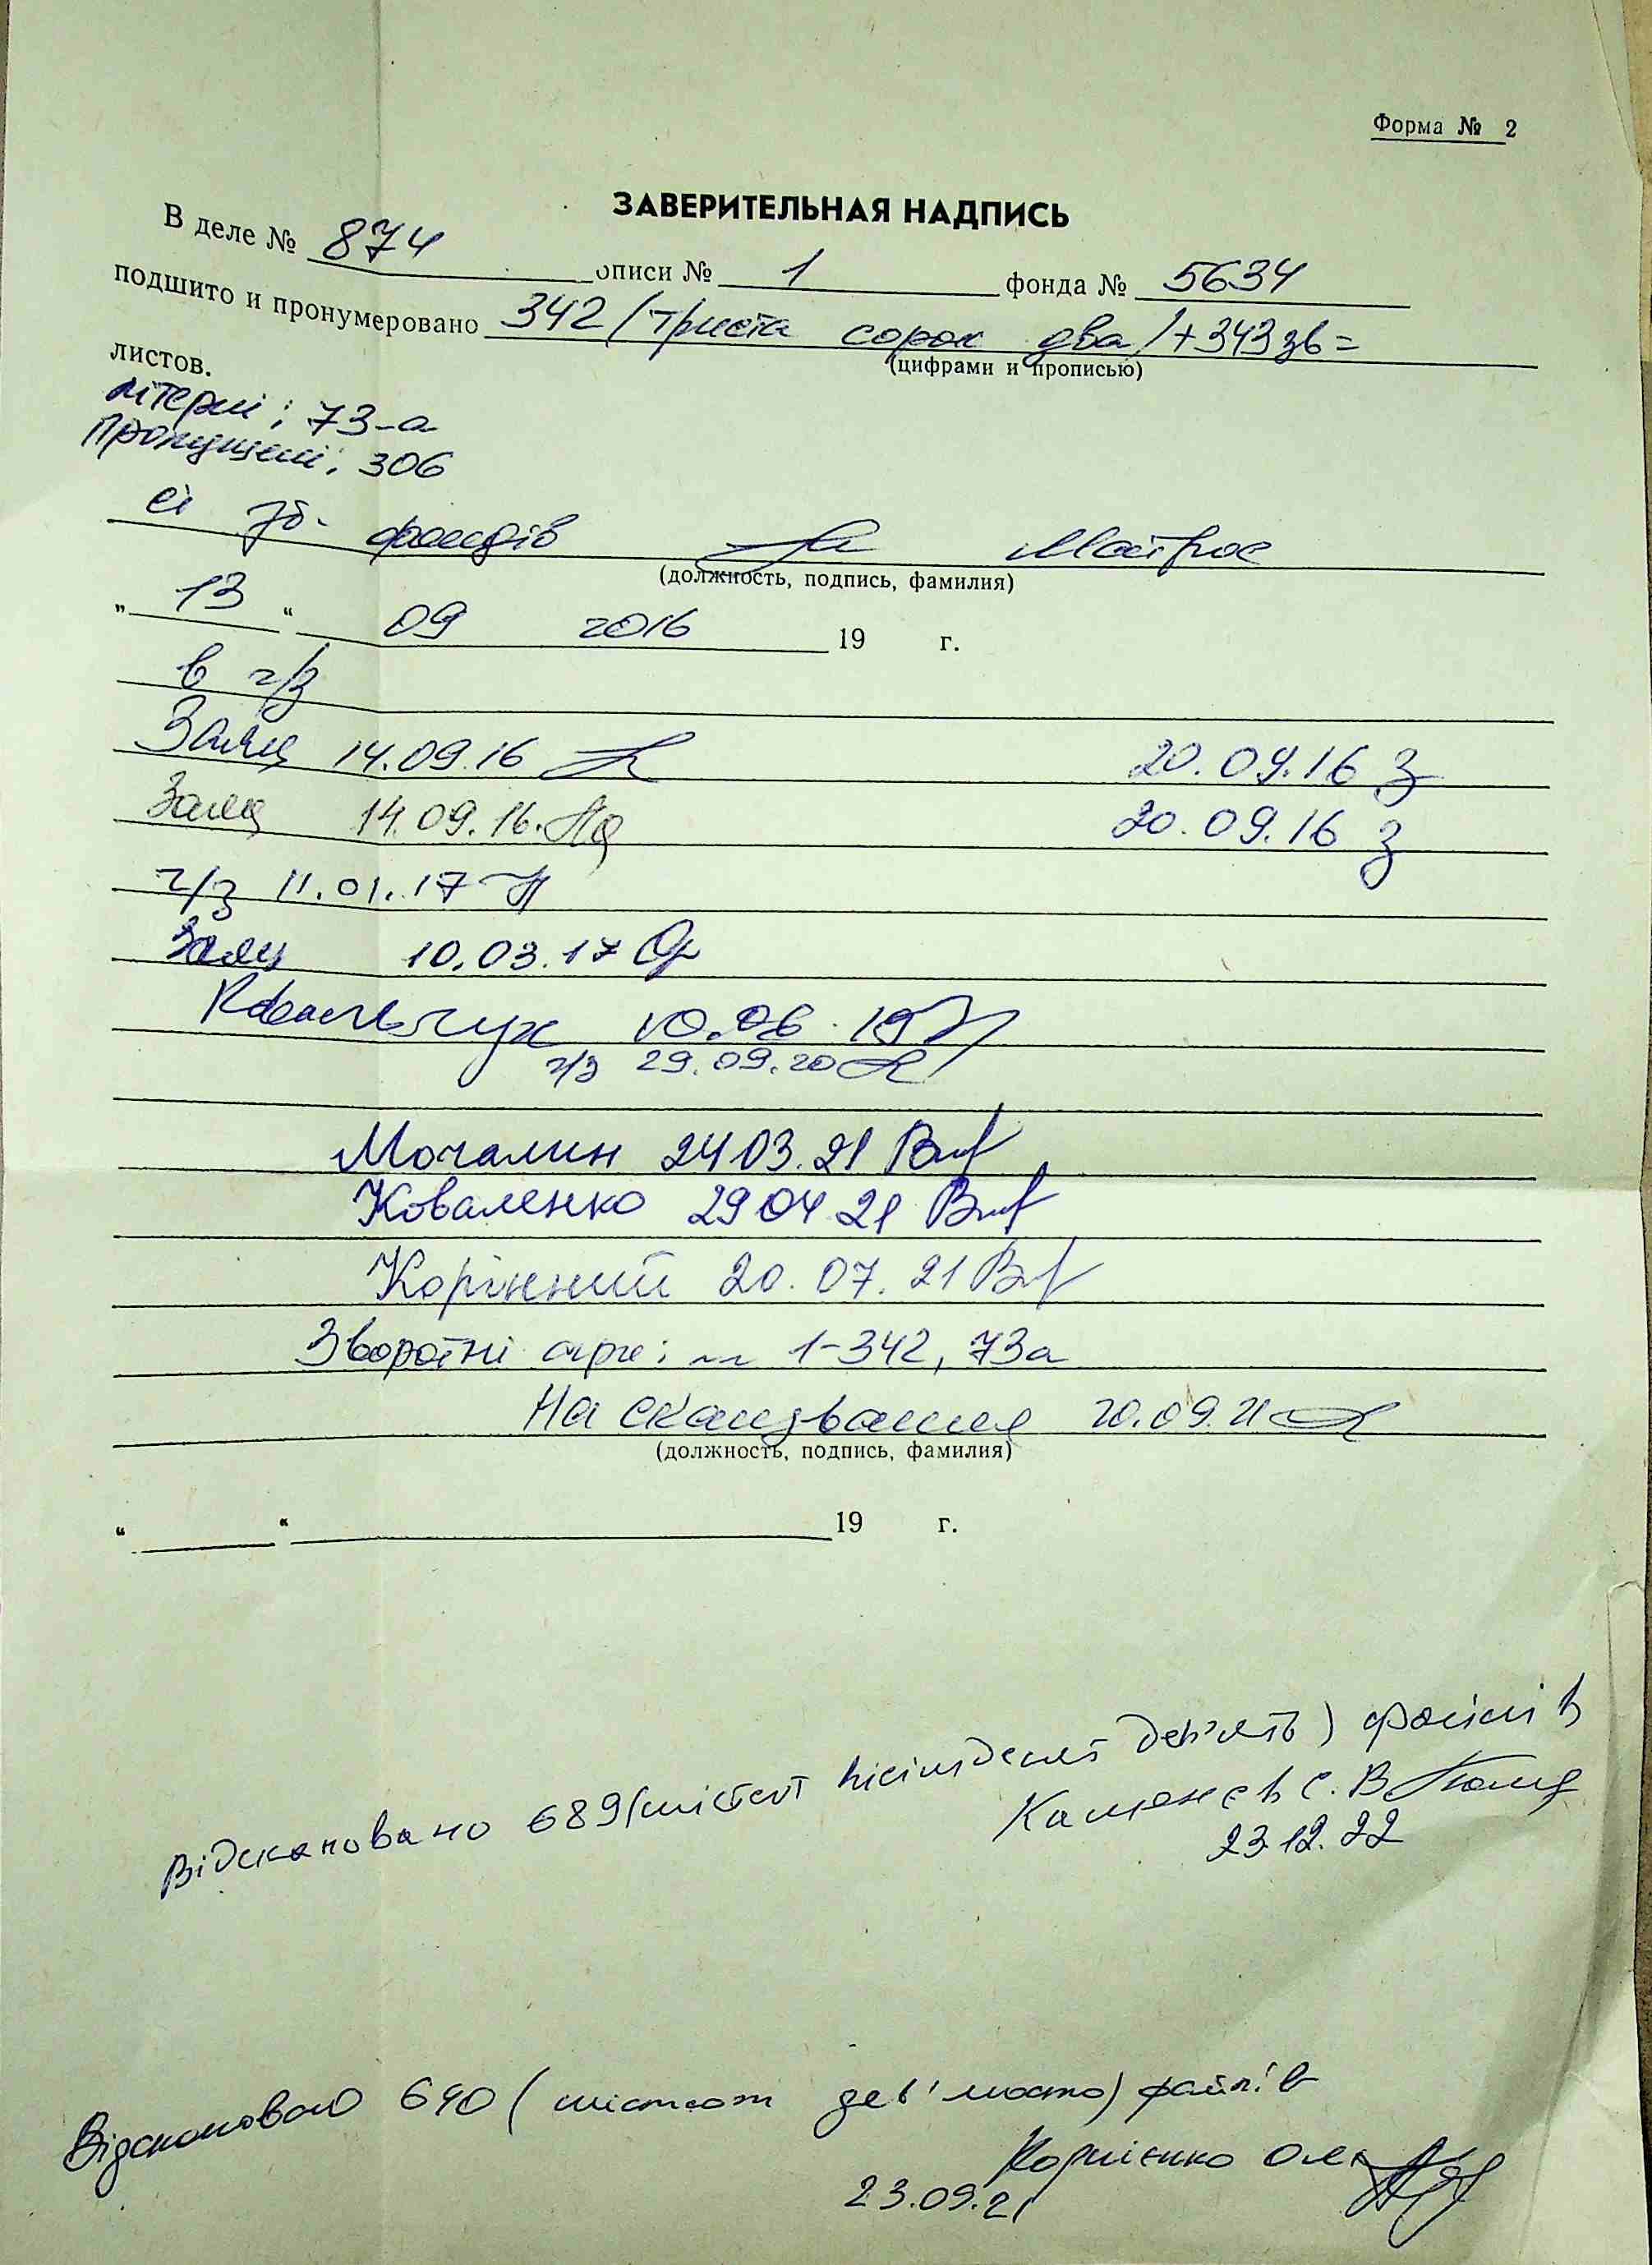 Форма № 2
ЗАВЕРИТЕЛЬНАЯ НАДПИСЬ
В деле № 874 описи № 1 фонда № 5634
подшито и пронумеровано 342 (триста сорок два) + 343зв =
(цифрами и прописью)
листов.
літерні: 73-а
Пропущені: 306
зб. фондів
(должность, подпись, фамилия)
„ 13 “ 09 2016 19 г.
в ч/з
Заяц 14.09.16 20.09.16 З
Заяц 14.09.16. 20.09.16 З
ч/з 11.01.17
Заяц 10.03.17
Ковальчук 10.06.19
ч/з 29.09.20
Мочалин 24 03. 21
Коваленко 29 04 21
Корінний 20. 07. 21
Зворотні арк: 1-342, 73а
На сканування 20.09.21
(должность, подпись, фамилия)
“ “ 19 г.
Відскановано 689 (шістсот вісімдесят дев'ять) файлів
С. В.
23 12. 22
Відскановано 690 (шістсот дев'яносто) файлів
Корнієнко
23.09.21